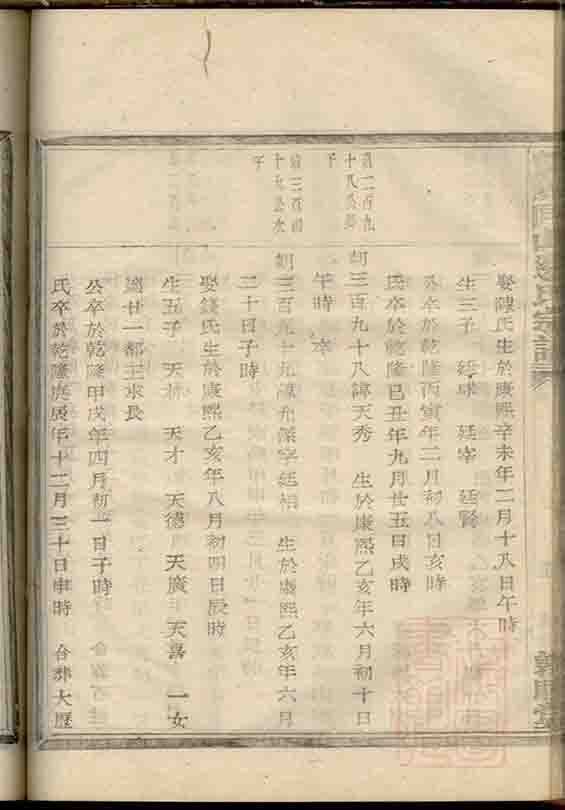 娶陳氏生於康熙辛未年二月十八日午時
生三子 廷球 廷宰 廷賢
公卒於乾隆丙寅年三月初八日亥時
氏卒於乾隆己丑年九月廿五日戌時
三百九十八諱天秀 生於康熙乙亥年六月初十日
午時 卒
三百九十九諱允傑字廷相 生於康熙乙亥年六月
二十日子時
娶錢氏生於康熙乙亥年八月初四日辰時
生五子 天林 天才 天德 天廣 天嘉 一女
適廿一都王求長
公卒於乾隆甲戌年四月初一日子時
氏卒於乾隆庚辰年十二月三十日申時 合葬大歷